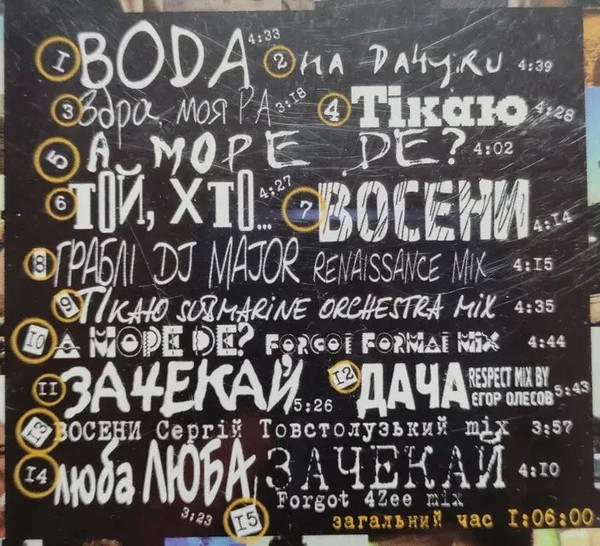 1 ВОДА 4:33 2 на DaЧy.RU 4:39
3 Здра, моя Ра 3:18 4 Тікаю 4:28
5 А МОРЕ ДЕ? 4:02
6 ТОЙ, ХТО... 4:27 7 ВОСЕНИ 4:14
8 ГРАБЛІ DJ MAJOR RENAISSANCE MIX 4:15
9 Тікаю SUBMARINE ORCHESTRA MIX 4:35
10 А МОРЕ DE? FORGOT FORMAT MIX 4:44
11 ЗАЧЕКАЙ 5:26 12 ДАЧА RESPECT MIX BY ЄГОР ОЛЕСОВ 5:43
13 ВОСЕНИ Сергій Товстолузький mix 3:57
14 люба ЛЮБА 3:23 15 ЗАЧЕКАЙ Forgot 4Zee mix 4:10
загальний час 1:06:00